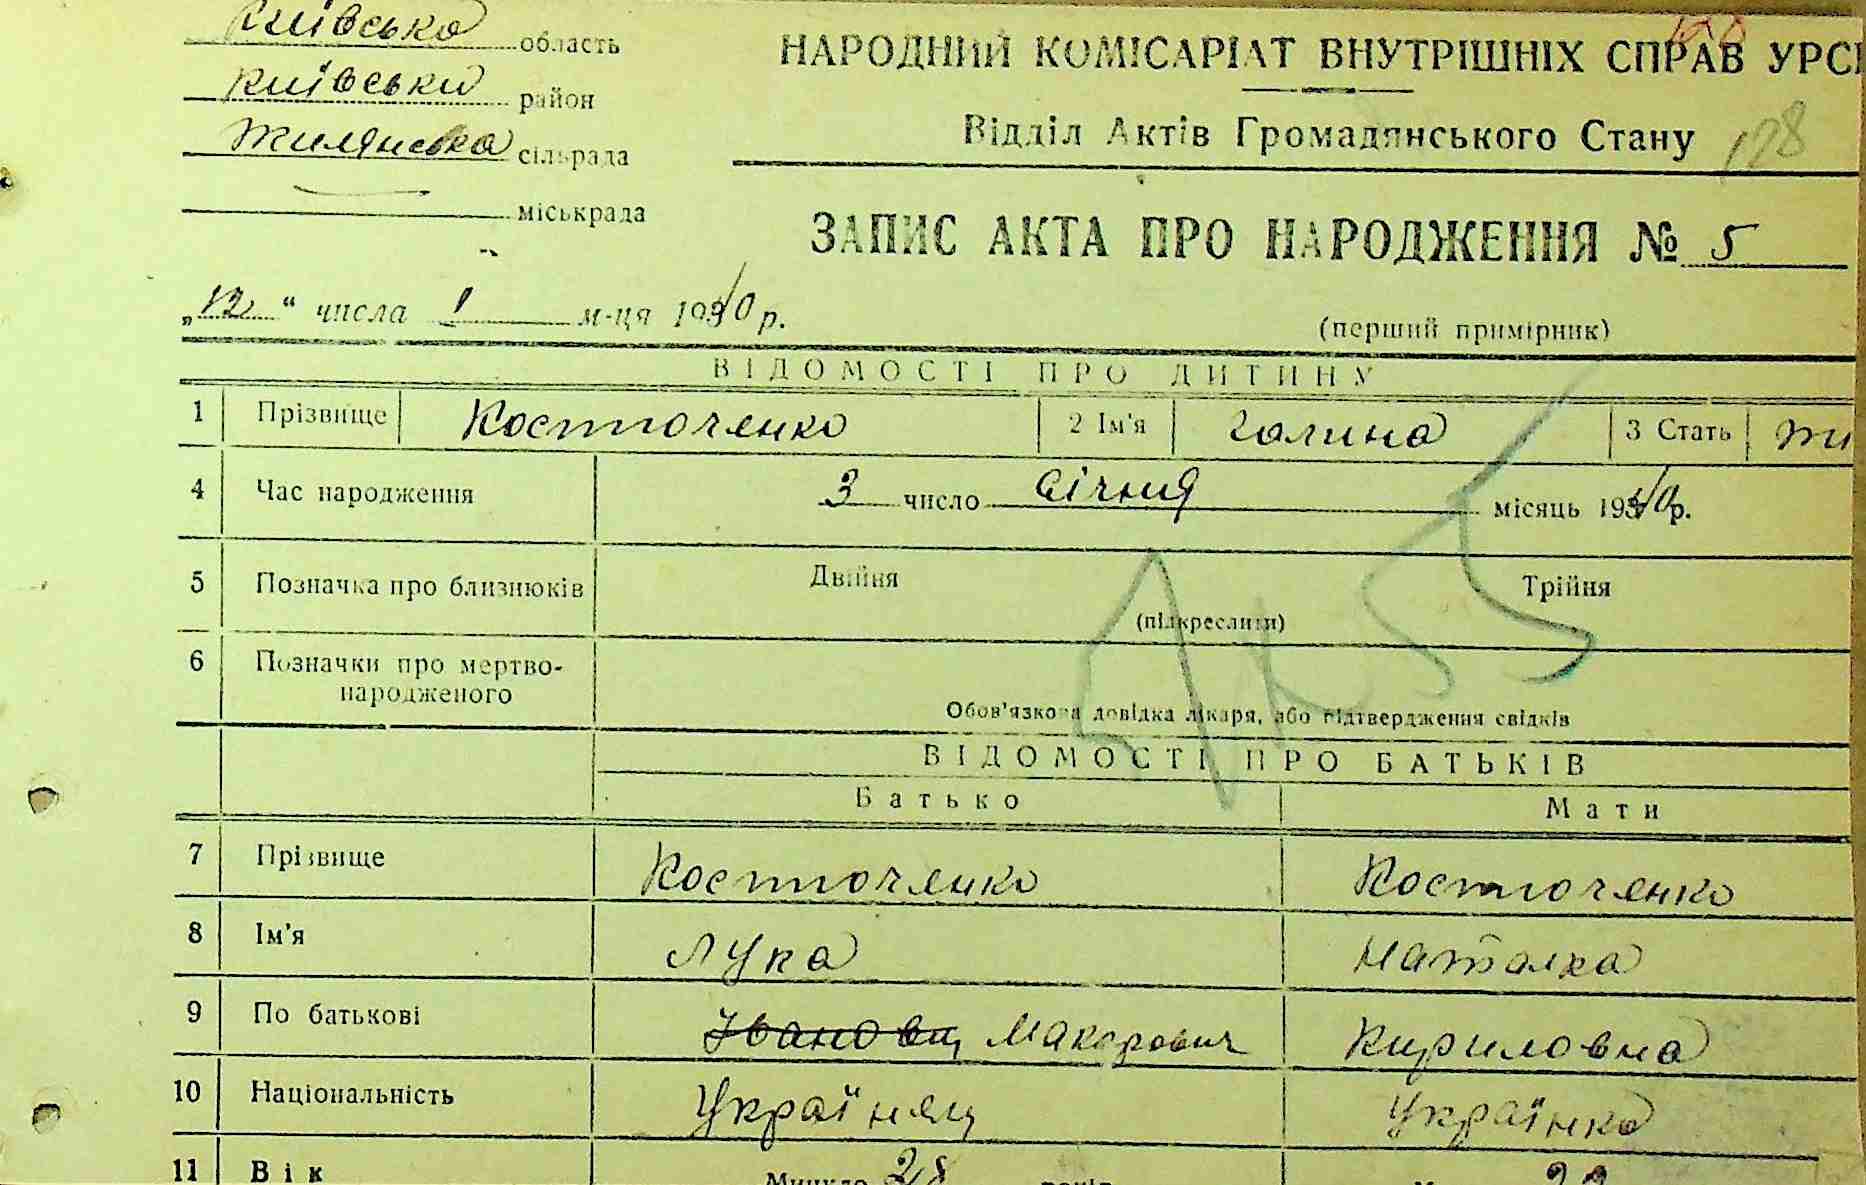 Київська область
Київський район
Жилянська сільрада
міськрада
НАРОДНИЙ КОМІСАРІАТ ВНУТРІШНІХ СПРАВ УРСР
Відділ Актів Громадянського Стану 128
ЗАПИС АКТА ПРО НАРОДЖЕННЯ № 5
„12“ числа 1 м-ця 1940 р.
(перший примірник)
ВІДОМОСТІ ПРО ДИТИНУ
1 Прізвище Костюченко 2 Ім'я Галина 3 Стать жі
4 Час народження 3 число січня місяць 1940 р.
5 Позначка про близнюків Двійня Трійня
(підкреслити)
6 Позначки про мертво-
народженого
Обов'язкова довідка лікаря, або підтвердження свідків
ВІДОМОСТІ ПРО БАТЬКІВ
Батько Мати
7 Прізвище Костюченко Костюченко
8 Ім'я Лука Наталка
9 По батькові Іванович Макарович Кириловна
10 Національність Українец Українка
11 Вік Минуло 28 років 22